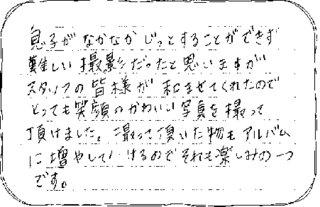 息子がなかなかじっとすることができず
難しい撮影だったと思いますが
スタッフの皆様が和ませてくれたので
とっても笑顔のかわいい写真を撮って
頂けました。撮って頂いた物もアルバム
に増やしていけるのでそれも楽しみの一つ
です。